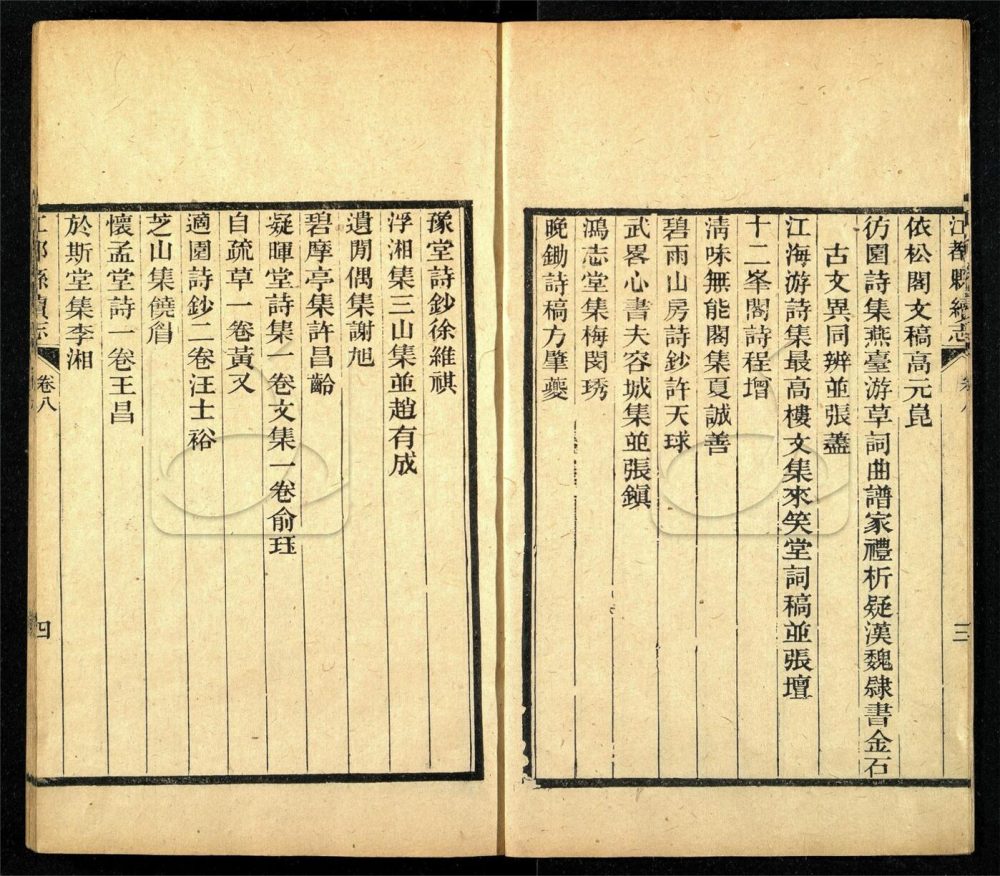 江都縣續志
三
依松閣文稿高元崑
彷園詩集燕臺游草詞曲譜家禮析疑漢魏隸書金石
古文異同辨並張藎
江海游詩集最高樓文集來笑堂詞稿並張壇
十二峯閣詩程增
淸味無能閣集夏誠善
碧雨山房詩鈔許天球
武畧心書夫容城集並張鎭
鴻志堂集梅閔琇
晚鋤詩稿方肇夔
豫堂詩鈔徐維祺
浮湘集三山集並趙有成
遺閒偶集謝旭
碧摩亭集許昌齡
凝暉堂詩集一卷文集一卷俞珏
自疏草一卷黃又
適園詩鈔二卷汪士裕
芝山集饒眉
懷孟堂詩一卷王昌
於斯堂集李湘
江都縣續志 卷八
四